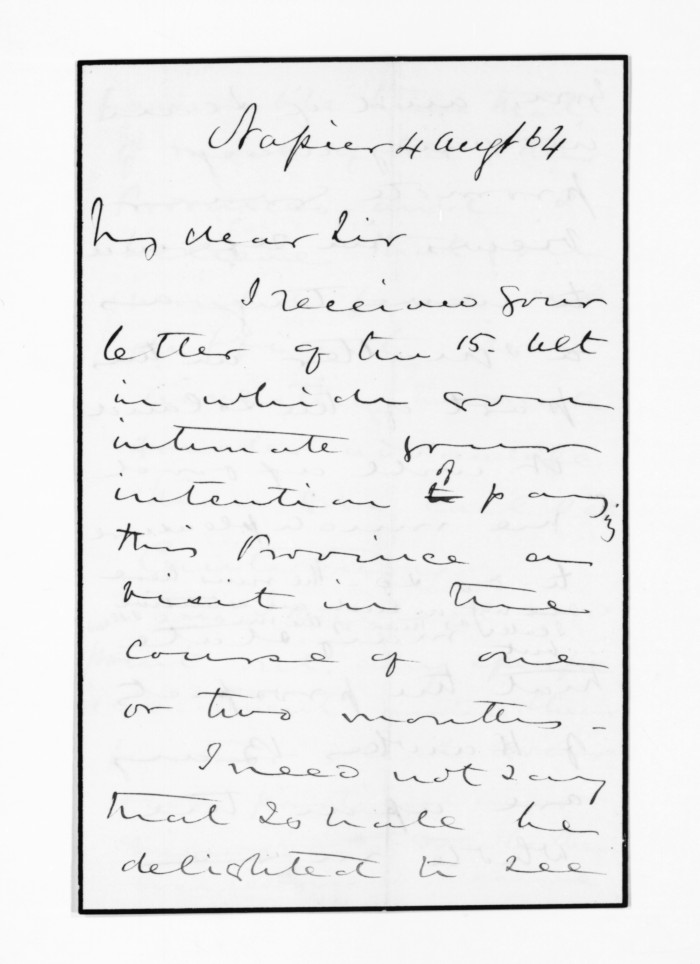 Napier 4 Augt 64
My dear Sir
I received your
letter of the 15. Ult
in which you
intimate your
intention to of paying
this Province a
visit in the
course of one
or two months -
I need not say
that I shall be
delighted to see